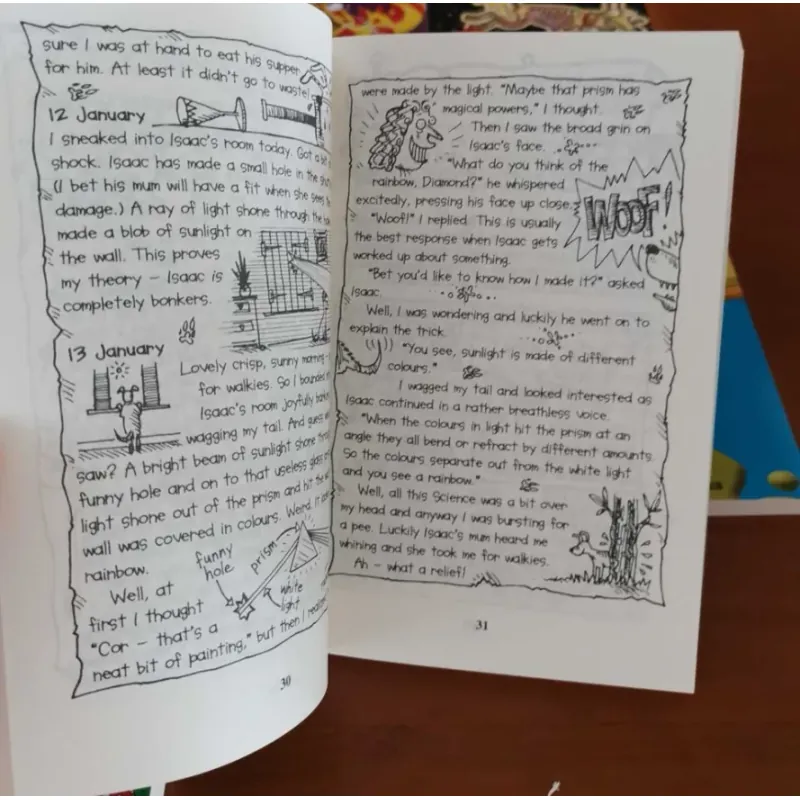 sure I was at hand to eat his supper
for him. At least it didn't go to waste!
12 January
I sneaked into Isaac's room today. Got a
shock. Isaac has made a small hole in the
(I bet his mum will have a fit when she sees
damage.) A ray of light shone through the
made a blob of sunlight on
the wall. This proves
my theory – Isaac is
completely bonkers.
13 January
Lovely crisp, sunny morning –
for walkies. So I bounded
Isaac's room joyfully
wagging my tail. And guess
saw? A bright beam of sunlight shone
funny hole and on to that useless glass
light shone out of the prism and hit the
wall was covered in colours. Weird. It
rainbow.
funny
hole
prism
white
light
Well, at
first I thought
"Cor – that's a
neat bit of painting," but then I
30
were made by the light. "Maybe that prism has
magical powers," I thought.
Then I saw the broad grin on
Isaac's face.
"What do you think of the
rainbow, Diamond?" he whispered
excitedly, pressing his face up close.
WOOF!
"Woof!" I replied. This is usually
the best response when Isaac gets
worked up about something.
"Bet you'd like to know how I made it?" asked
Isaac.
Well, I was wondering and luckily he went on to
explain the trick.
"You see, sunlight is made of different
colours."
I wagged my tail and looked interested as
Isaac continued in a rather breathless voice.
"When the colours in light hit the prism at an
angle they all bend or refract by different amounts.
So the colours separate out from the white light
and you see a rainbow."
Well, all this Science was a bit over
my head and anyway I was bursting for
a pee. Luckily Isaac's mum heard me
whining and she took me for walkies.
Ah – what a relief!
31